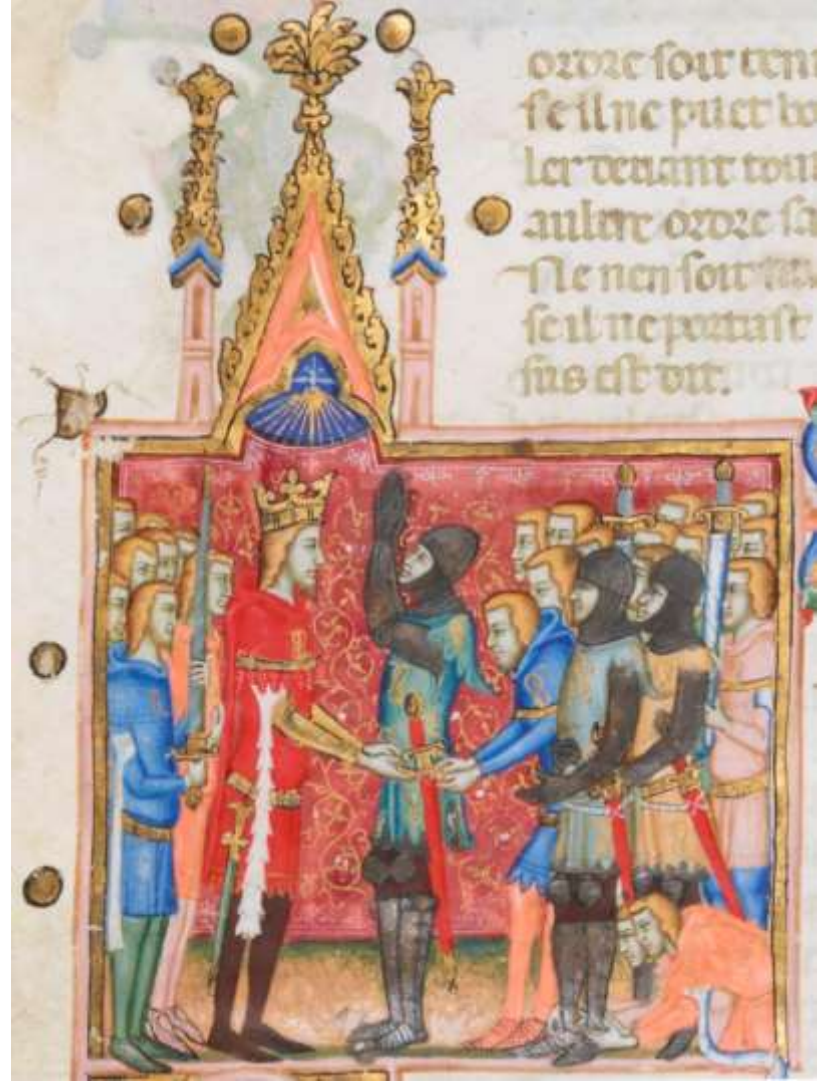 ordre soit teni
se il ne puet bo
ler devant tou
aultre ordre sa
Ne nen soit
se il ne portast
sus est dit.